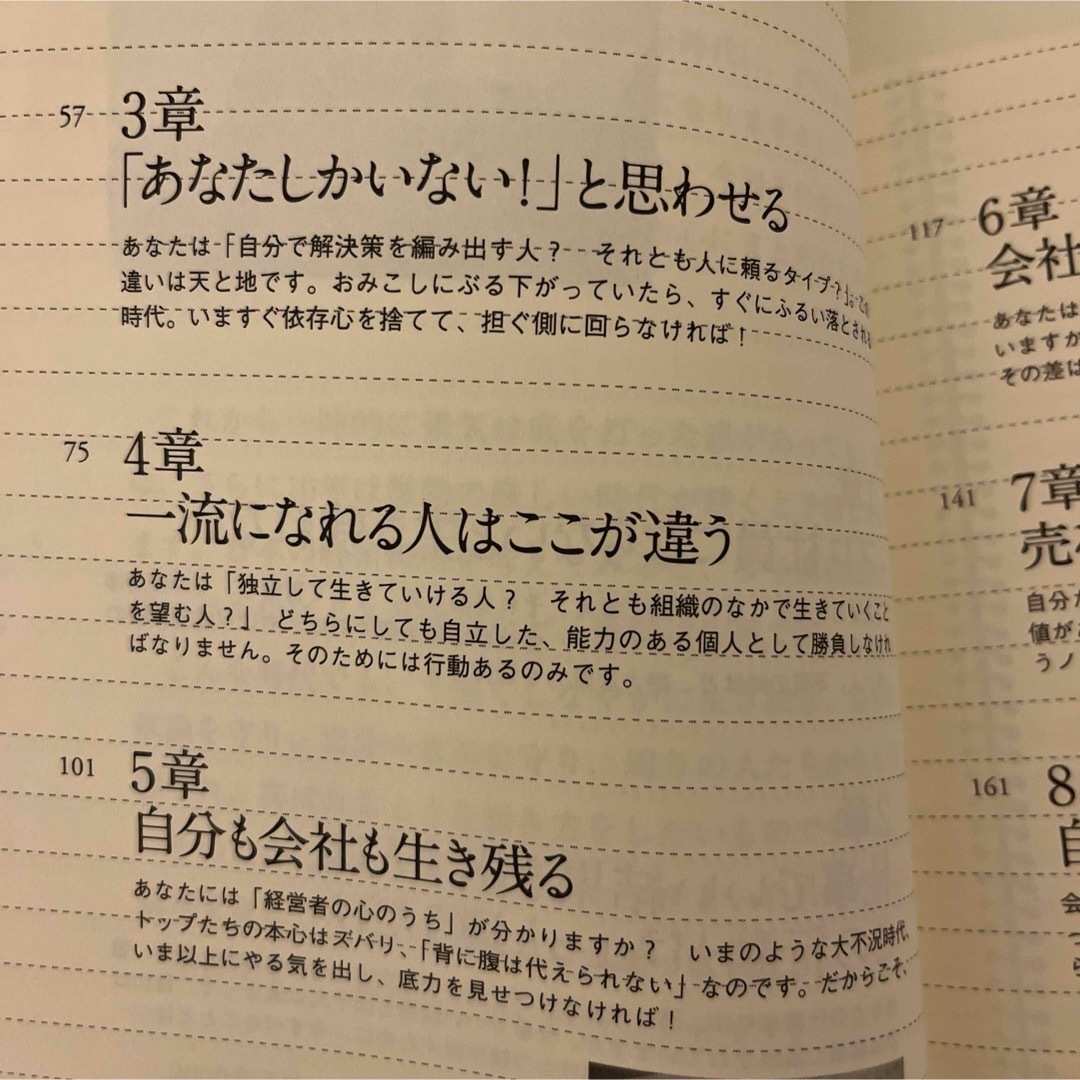 57 3章
「あなたしかいない!」と思わせる
あなたは「自分で解決策を編み出す人? それとも人に頼るタイプ?」。この
違いは天と地です。おみこしにぶる下がっていたら、すぐにふるい落とされる
時代。いますぐ依存心を捨てて、担ぐ側に回らなければ!
75 4章
一流になれる人はここが違う
あなたは「独立して生きていける人? それとも組織のなかで生きていくこと
を望む人?」 どちらにしても自立した、能力のある個人として勝負しなけれ
ばなりません。そのためには行動あるのみです。
101 5章
自分も会社も生き残る
あなたには「経営者の心のうち」が分かりますか? いまのような大不況時代、
トップたちの本心はズバリ、「背に腹は代えられない」なのです。だからこそ、
いま以上にやる気を出し、底力を見せつけなければ!
117 6章
会社
あなたは
いますか
その差は
141 7章
売
自分
値が
うノ
161 8
自
会
っ
ら